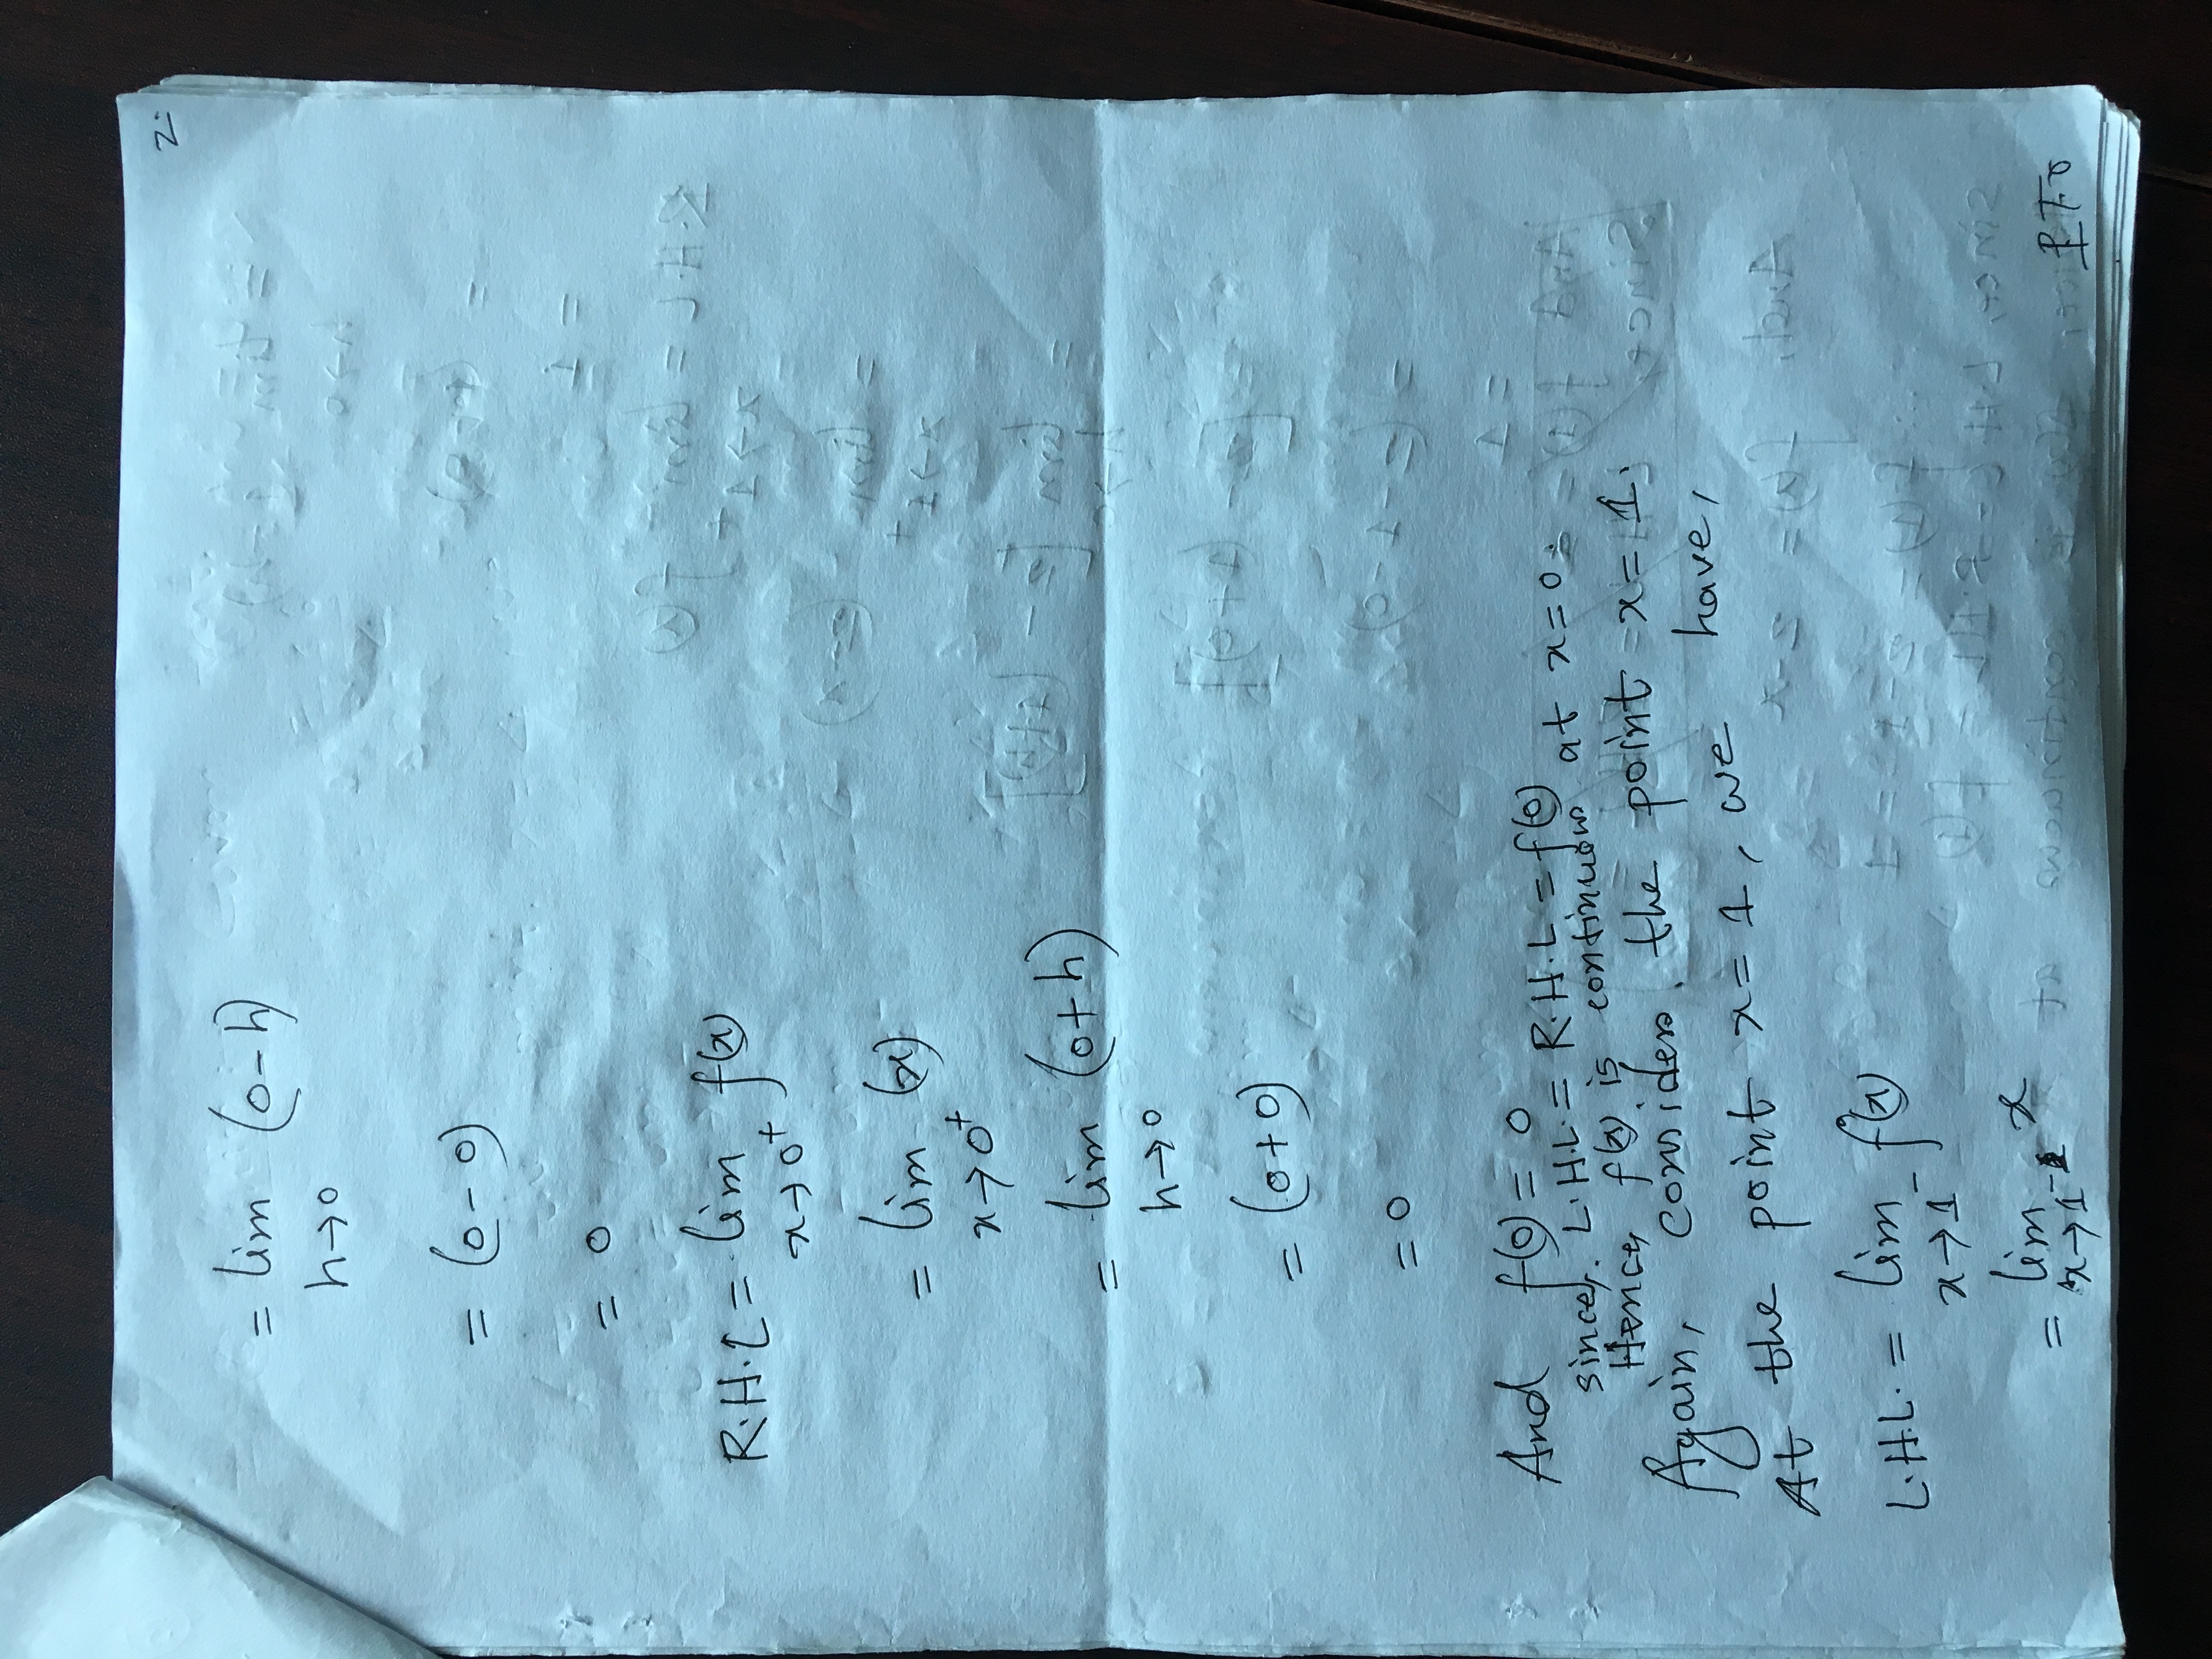 2.
= lim (0-h)
h→0
= (0-0)
= 0
R.H.L = lim f(x)
x→0⁺
= lim (x)
x→0⁺
= lim (0+h)
h→0
= (0+0)
= 0
And f(0) = 0
since, L.H.L. = R.H.L = f(0)
Hence, f(x) is continuous at x=0.
Again, consider the point x=1.
At the point x=1, we have,
L.H.L. = lim f(x)
x→1⁻
= lim x
x→1⁻
PTO